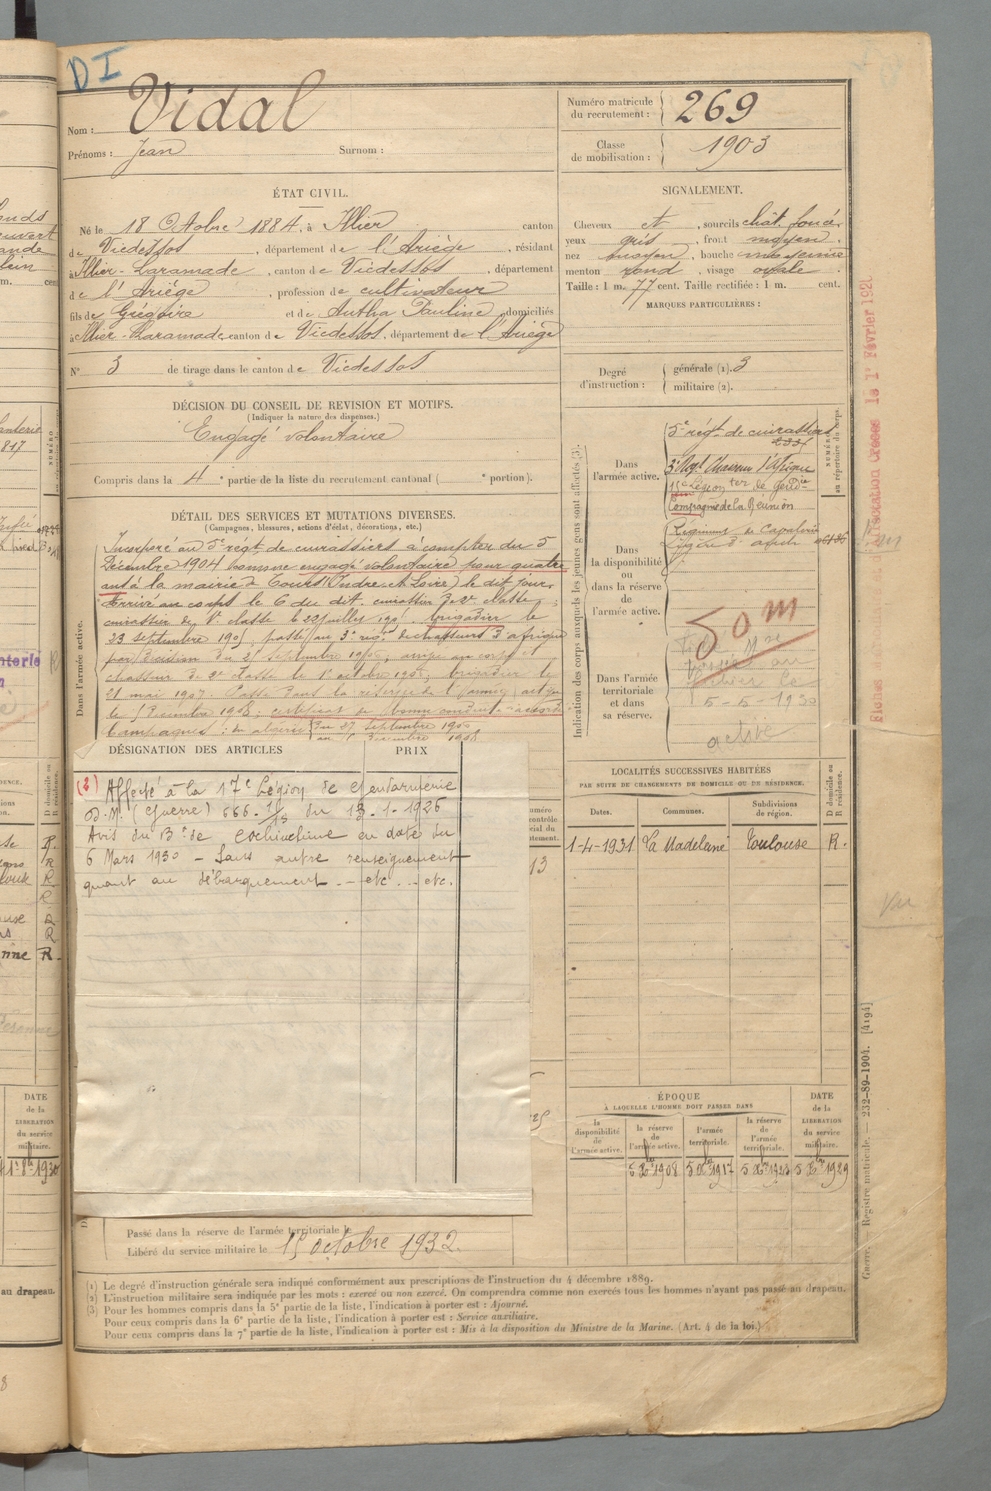 DI
Nom : Vidal
Prénoms : Jean Surnom :
Numéro matricule du recrutement : 269
Classe de mobilisation : 1903
ÉTAT CIVIL.
Né le 18 Octobre 1884, à Illier canton
de Vicdessos, département de l'Ariège, résidant
à Illier-Laramade, canton de Vicdessos, département
de l'Ariège, profession de cultivateur
fils de Grégoire et de Autha Pauline domiciliés
à Illier-Laramade, canton de Vicdessos, département de l'Ariège
N° 3 de tirage dans le canton de Vicdessos
SIGNALEMENT.
Cheveux et, sourcils chât. foncé
yeux gris, front moyen
nez moyen, bouche moyenne
menton rond, visage ovale
Taille : 1 m. 77 cent. Taille rectifiée : 1 m. cent.
MARQUES PARTICULIÈRES :
Degré d'instruction : générale (1). 3
militaire (2).
DÉCISION DU CONSEIL DE REVISION ET MOTIFS.
(Indiquer la nature des dispenses.)
Engagé volontaire
Compris dans la 4e partie de la liste du recrutement cantonal ( e portion).
DÉTAIL DES SERVICES ET MUTATIONS DIVERSES.
(Campagnes, blessures, actions d'éclat, décorations, etc.)
Dans l'armée active.
Incorporé au 5e régt de cuirassiers à compter du 5
Décembre 1904 comme engagé volontaire pour quatre
ans à la mairie de Tours (Indre et Loire) le dit jour.
Arrivé au corps le 6 du dit. cuirassier de 2e classe
cuirassier de 1e classe le 22 juillet 1905. Brigadier le
23 septembre 1905. passé au 3e régt de chasseurs d'afrique
par décision du 2 septembre 1906, arrivé au corps et
chasseur de 2e classe le 1e octobre 1906, brigadier le
21 mai 1907. Passé dans la réserve de l'armée active
le 5 Décembre 1908. certificat de bonne conduite accordé
Campagnes : en algérie du 27 septembre 1906
au 5 Décembre 1908
Indication des corps auxquels les jeunes gens sont affectés (3).
NUMÉRO au répertoire du corps.
Dans l'armée active.
5e régt de cuirassiers
3e Régt Chasseurs d'Afrique
15e Légion ter de Gendie
Compagnie de La Réunion
Dans la disponibilité ou dans la réserve de l'armée active.
Dans l'armée territoriale et dans sa réserve.
50 m
5-5-1930
active
DÉSIGNATION DES ARTICLES PRIX
(2) Affecté à la 17e Légion de Gendarmerie
D.M. (Guerre) 666. du 13.1.1926
Avis du Bn de Cochinchine en date du
6 Mars 1930 - Sans autre renseignement
quant au débarquement ... etc ... etc.
LOCALITÉS SUCCESSIVES HABITÉES
PAR SUITE DE CHANGEMENTS DE DOMICILE OU DE RÉSIDENCE.
Dates. Communes. Subdivisions de région. D domicile ou R résidence.
1-4-1931 La Madeleine Toulouse R.
ÉPOQUE
À LAQUELLE L'HOMME DOIT PASSER DANS
la disponibilité de l'armée active. la réserve de l'armée active. l'armée territoriale. la réserve de l'armée territoriale. DATE de la LIBÉRATION du service militaire.
5 Xbre 1908 5 Xbre 1917 5 Xbre 1923 5 Xbre 1929
Passé dans la réserve de l'armée territoriale le
Libéré du service militaire le 15 octobre 1932.
(1) Le degré d'instruction générale sera indiqué conformément aux prescriptions de l'instruction du 4 décembre 1889.
(2) L'instruction militaire sera indiquée par les mots : exercé ou non exercé. On comprendra comme non exercés tous les hommes n'ayant pas passé au drapeau.
(3) Pour les hommes compris dans la 5e partie de la liste, l'indication à porter est : Ajourné.
Pour ceux compris dans la 6e partie de la liste, l'indication à porter est : Service auxiliaire.
Pour ceux compris dans la 7e partie de la liste, l'indication à porter est : Mis à la disposition du Ministre de la Marine. (Art. 4 de la loi.)
Guerre. — Registre matricule. — 232-89-1904. [4194]